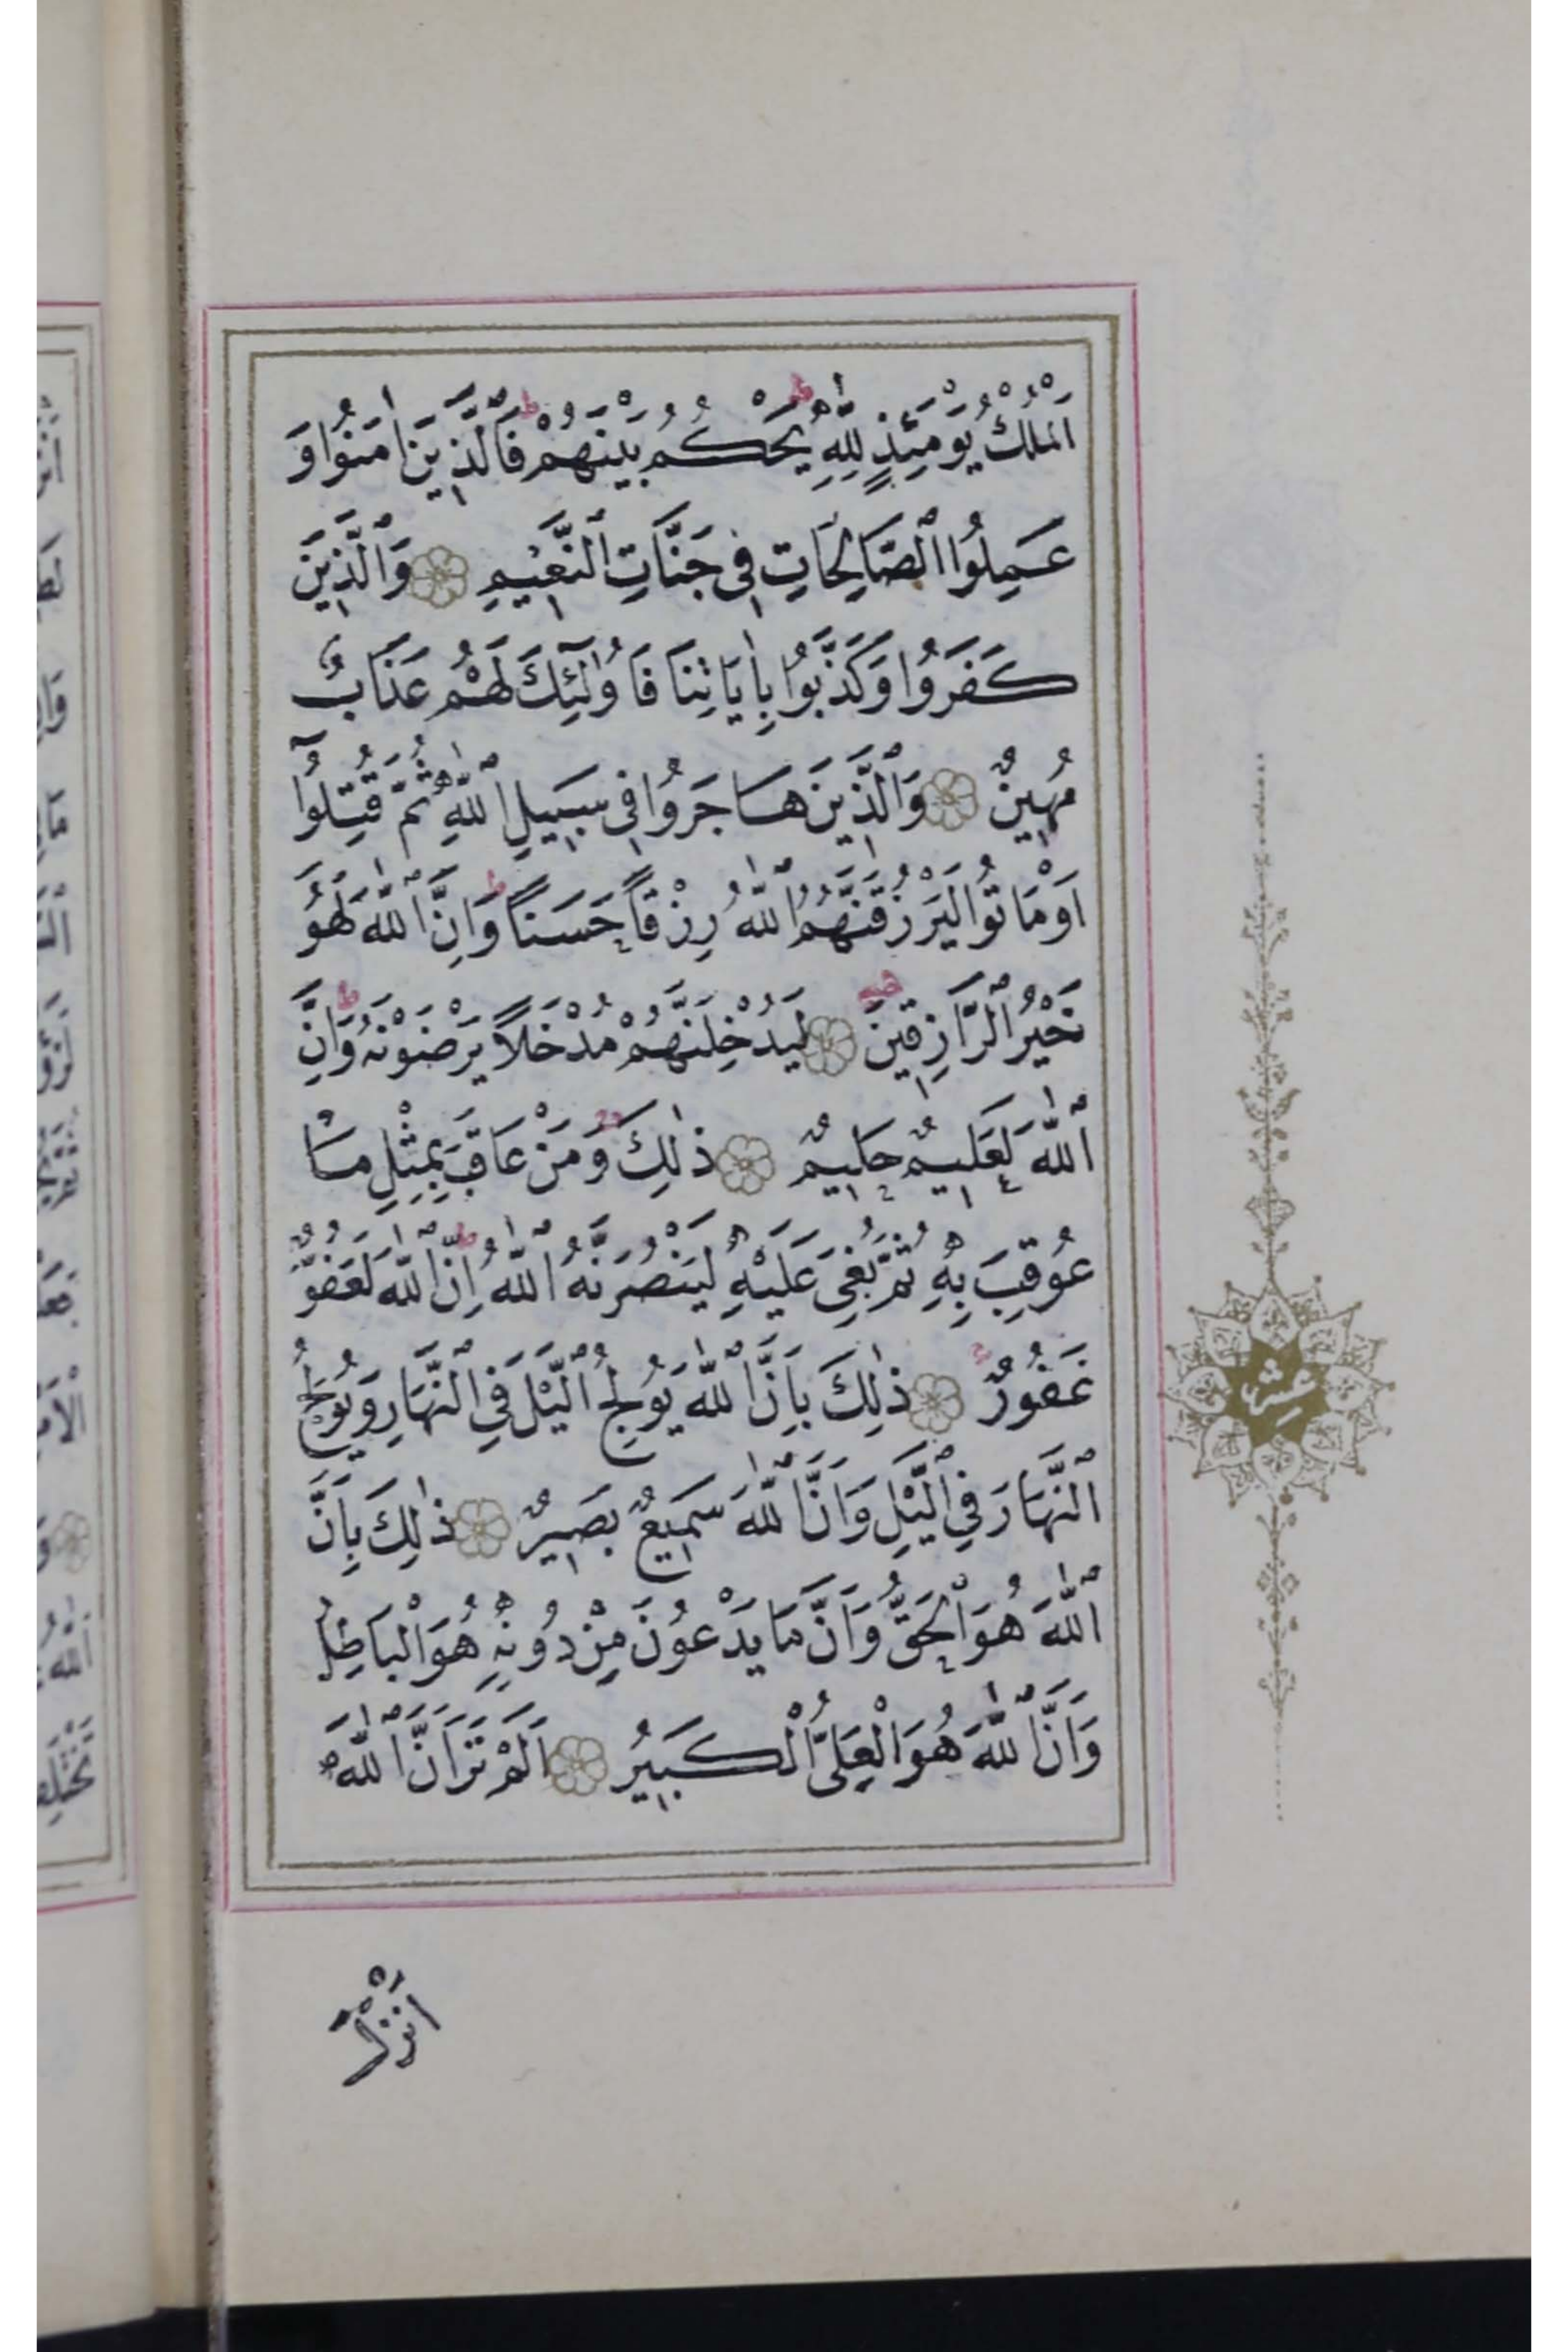 اَلْمُلْكُ يَوْمَئِذٍ لِلّٰهِ يَحْكُمُ بَيْنَهُمْ فَالَّذِينَ اٰمَنُوا وَ
عَمِلُوا الصَّالِحَاتِ فِي جَنَّاتِ النَّعِيمِ وَالَّذِينَ
كَفَرُوا وَكَذَّبُوا بِاٰيَاتِنَا فَاُولٰٓئِكَ لَهُمْ عَذَابٌ
مُهِينٌ وَالَّذِينَ هَاجَرُوا فِي سَبِيلِ اللّٰهِ ثُمَّ قُتِلُوٓا
اَوْ مَاتُوا لَيَرْزُقَنَّهُمُ اللّٰهُ رِزْقًا حَسَنًا وَاِنَّ اللّٰهَ لَهُوَ
خَيْرُ الرَّازِقِينَ لَيُدْخِلَنَّهُمْ مُدْخَلًا يَرْضَوْنَهُ وَاِنَّ
اللّٰهَ لَعَلِيمٌ حَلِيمٌ ذٰلِكَ وَمَنْ عَاقَبَ بِمِثْلِ مَا
عُوقِبَ بِهِ ثُمَّ بُغِيَ عَلَيْهِ لَيَنْصُرَنَّهُ اللّٰهُ اِنَّ اللّٰهَ لَعَفُوٌّ
غَفُورٌ ذٰلِكَ بِاَنَّ اللّٰهَ يُولِجُ الَّيْلَ فِي النَّهَارِ وَيُولِجُ
النَّهَارَ فِي الَّيْلِ وَاَنَّ اللّٰهَ سَمِيعٌ بَصِيرٌ ذٰلِكَ بِاَنَّ
اللّٰهَ هُوَ الْحَقُّ وَاَنَّ مَا يَدْعُونَ مِنْ دُونِهِ هُوَ الْبَاطِلُ
وَاَنَّ اللّٰهَ هُوَ الْعَلِيُّ الْكَبِيرُ اَلَمْ تَرَ اَنَّ اللّٰهَ
اَنْزَلَ
عشر